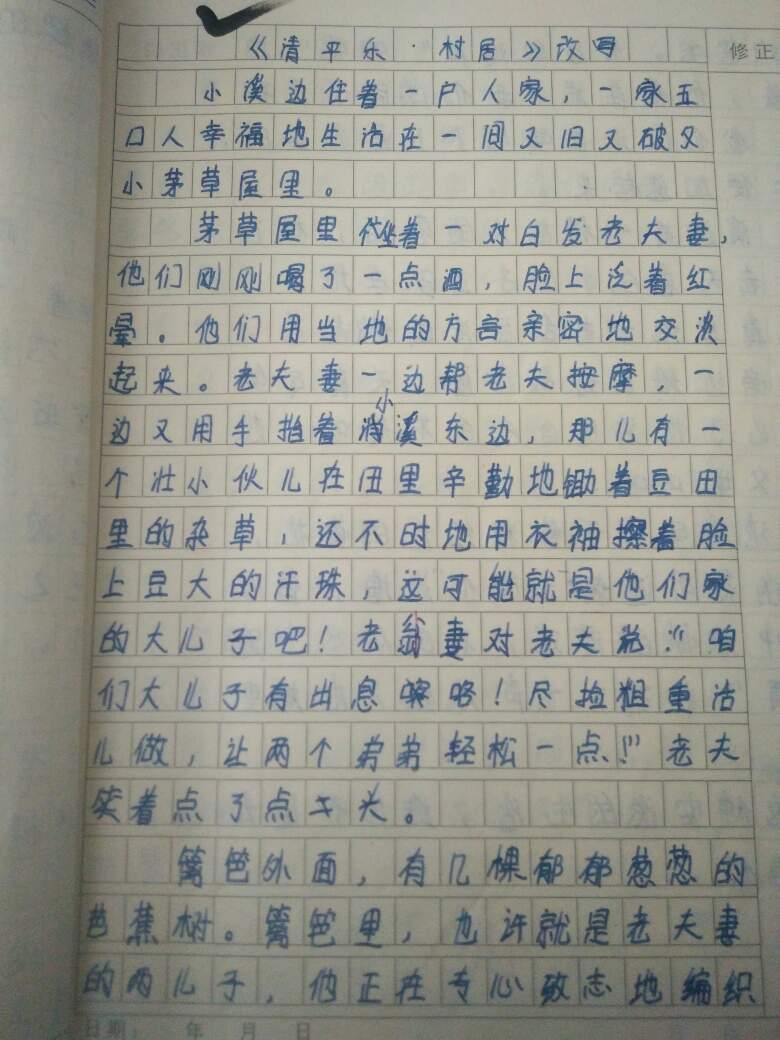 《清平乐·村居》改写
修正
小溪边住着一户人家，一家五
口人幸福地生活在一间又旧又破又
小茅草屋里。
茅草屋里坐着一对白发老夫妻，
他们刚刚喝了一点酒，脸上泛着红
晕。他们用当地的方言亲密地交谈
起来。老夫妻一边帮老夫按摩，一
边又用手指着小溪东边，那儿有一
个壮小伙儿在田里辛勤地锄着豆田
里的杂草，还不时地用衣袖擦着脸
上豆大的汗珠，这可能就是他们家
的大儿子吧！老翁妻对老夫说：“咱
们大儿子有出息咯！尽捡粗重活
儿做，让两个弟弟轻松一点！”老夫
笑着点了点头。
篱笆外面，有几棵郁郁葱葱的
芭蕉树。篱笆里，也许就是老夫妻
的两儿子，他正在专心致志地编织
日期： 年 月 日